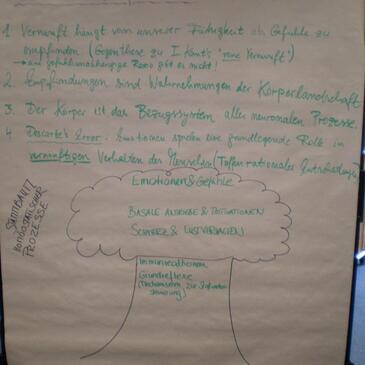 1 Vernunft hängt von unserer Fähigkeit ab Gefühle zu
empfinden (Gegenthese zu I. Kant's "reine Vernunft")
→ gefühlsunabhängige Ratio gibt es nicht!
2. Empfindungen sind Wahrnehmungen der Körperlandschaft
3. Der Körper ist das Bezugssystem aller neuronalen Prozesse.
4 Descarte's Error. Emotionen spielen eine grundlegende Rolle in
vernünftigen Verhalten des Menschen (Treffen rationaler Entscheidungen)
Emotionen & Gefühle
BASALE ANTRIEBE & MOTIVATIONEN
SCHMERZ & LUSTVERHALTEN
Immunreaktionen
Grundreflexe
(Mechanismen zur
steuerung)
STAMMBAUM
HOMÖOSTATISCHER
PROZESSE